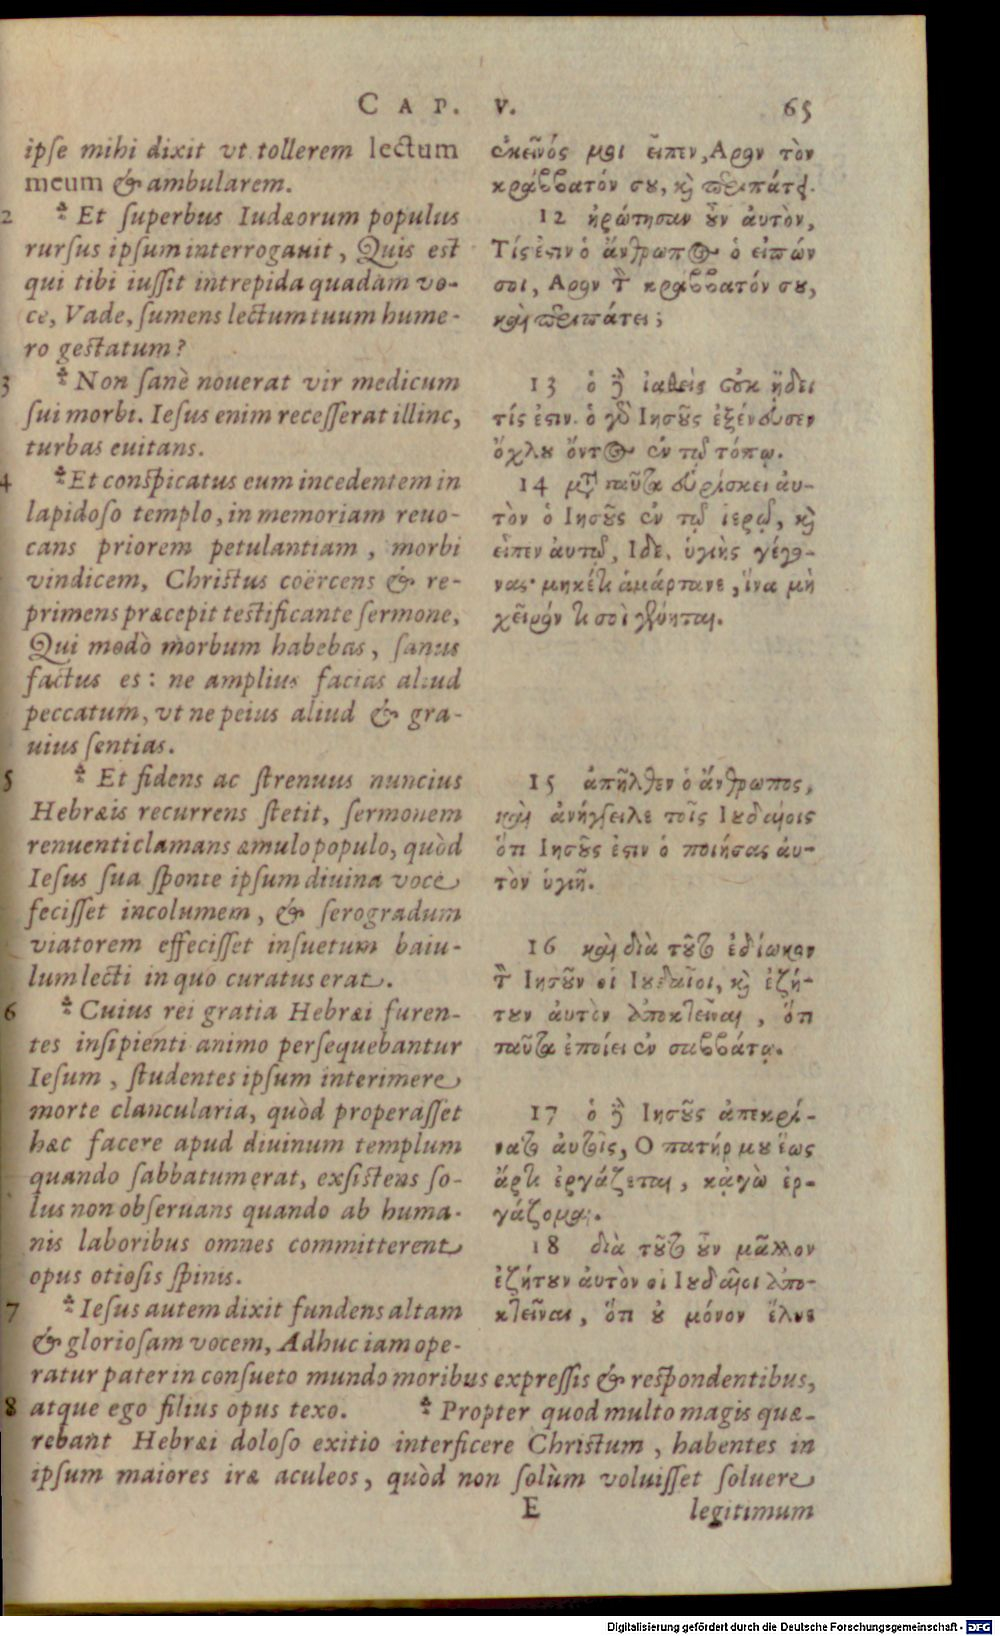 CAP. V. 65
ipſe mihi dixit vt tollerem lectum
meum & ambularem.
2 Et ſuperbus Iudæorum populus
rurſus ipſum interrogauit, Quis eſt
qui tibi iuſſit intrepida quadam vo-
ce, Vade, ſumens lectum tuum hume-
ro geſtatum?
3 Non ſanè nouerat vir medicum
ſui morbi. Ieſus enim receſſerat illinc,
turbas euitans.
4 Et conſpicatus eum incedentem in
lapidoſo templo, in memoriam reuo-
cans priorem petulantiam, morbi
vindicem, Chriſtus coërcens & re-
primens præcepit teſtificante ſermone,
Qui modò morbum habebas, ſanus
factus es: ne amplius facias aliud
peccatum, vt ne peius aliud & gra-
uius ſentias.
5 Et fidens ac ſtrenuus nuncius
Hebræis recurrens ſtetit, ſermonem
renuenti clamans æmulo populo, quòd
Ieſus ſua ſponte ipſum diuina voce
feciſſet incolumem, & ſerogradum
viatorem effeciſſet inſuetum baiu-
lum lecti in quo curatus erat.
6 Cuius rei gratia Hebræi furen-
tes inſipienti animo perſequebantur
Ieſum, ſtudentes ipſum interimere
morte clancularia, quòd properaſſet
hæc facere apud diuinum templum
quando ſabbatum erat, exſiſtens ſo-
lus non obſeruans quando ab huma-
nis laboribus omnes committerent
opus otioſis ſpinis.
7 Ieſus autem dixit fundens altam
& glorioſam vocem, Adhuc iam ope-
ἐκεῖνός μοι εἶπεν, Αρον τὸν
κράββατόν σου, καὶ περιπάτει.
12 ἠρώτησαν οὖν αὐτὸν,
Τίς ἐστιν ὁ ἄνθρωπος ὁ εἰπών
σοι, Αρον τὸν κράββατόν σου,
καὶ περιπάτει;
13 ὁ δὲ ἰαθεὶς οὐκ ᾔδει
τίς ἐστιν. ὁ γὰρ Ιησοῦς ἐξένευσεν
ὄχλου ὄντος ἐν τῷ τόπῳ.
14 μετὰ ταῦτα εὑρίσκει αὐ-
τὸν ὁ Ιησοῦς ἐν τῷ ἱερῷ, καὶ
εἶπεν αὐτῷ, Ιδε, ὑγιὴς γέγο-
νας· μηκέτι ἁμάρτανε, ἵνα μὴ
χεῖρόν τι σοὶ γένηται.
15 ἀπῆλθεν ὁ ἄνθρωπος,
καὶ ἀνήγγειλε τοῖς Ιουδαίοις
ὅτι Ιησοῦς ἐστιν ὁ ποιήσας αὐ-
τὸν ὑγιῆ.
16 καὶ διὰ τοῦτο ἐδίωκον
τὸν Ιησοῦν οἱ Ιουδαῖοι, καὶ ἐζή-
τουν αὐτὸν ἀποκτεῖναι, ὅτι
ταῦτα ἐποίει ἐν σαββάτῳ.
17 ὁ δὲ Ιησοῦς ἀπεκρί-
νατο αὐτοῖς, Ο πατήρ μου ἕως
ἄρτι ἐργάζεται, κᾀγὼ ἐρ-
γάζομαι.
18 διὰ τοῦτο οὖν μᾶλλον
ἐζήτουν αὐτὸν οἱ Ιουδαῖοι ἀπο-
κτεῖναι, ὅτι οὐ μόνον ἔλυε
ratur pater in conſueto mundo moribus expreſſis & reſpondentibus,
8 atque ego filius opus texo. Propter quod multo magis quæ-
rebant Hebræi doloſo exitio interficere Chriſtum, habentes in
ipſum maiores iræ aculeos, quòd non ſolùm voluiſſet ſoluere
E legitimum
Digitalisierung gefördert durch die Deutsche Forschungsgemeinschaft - DFG